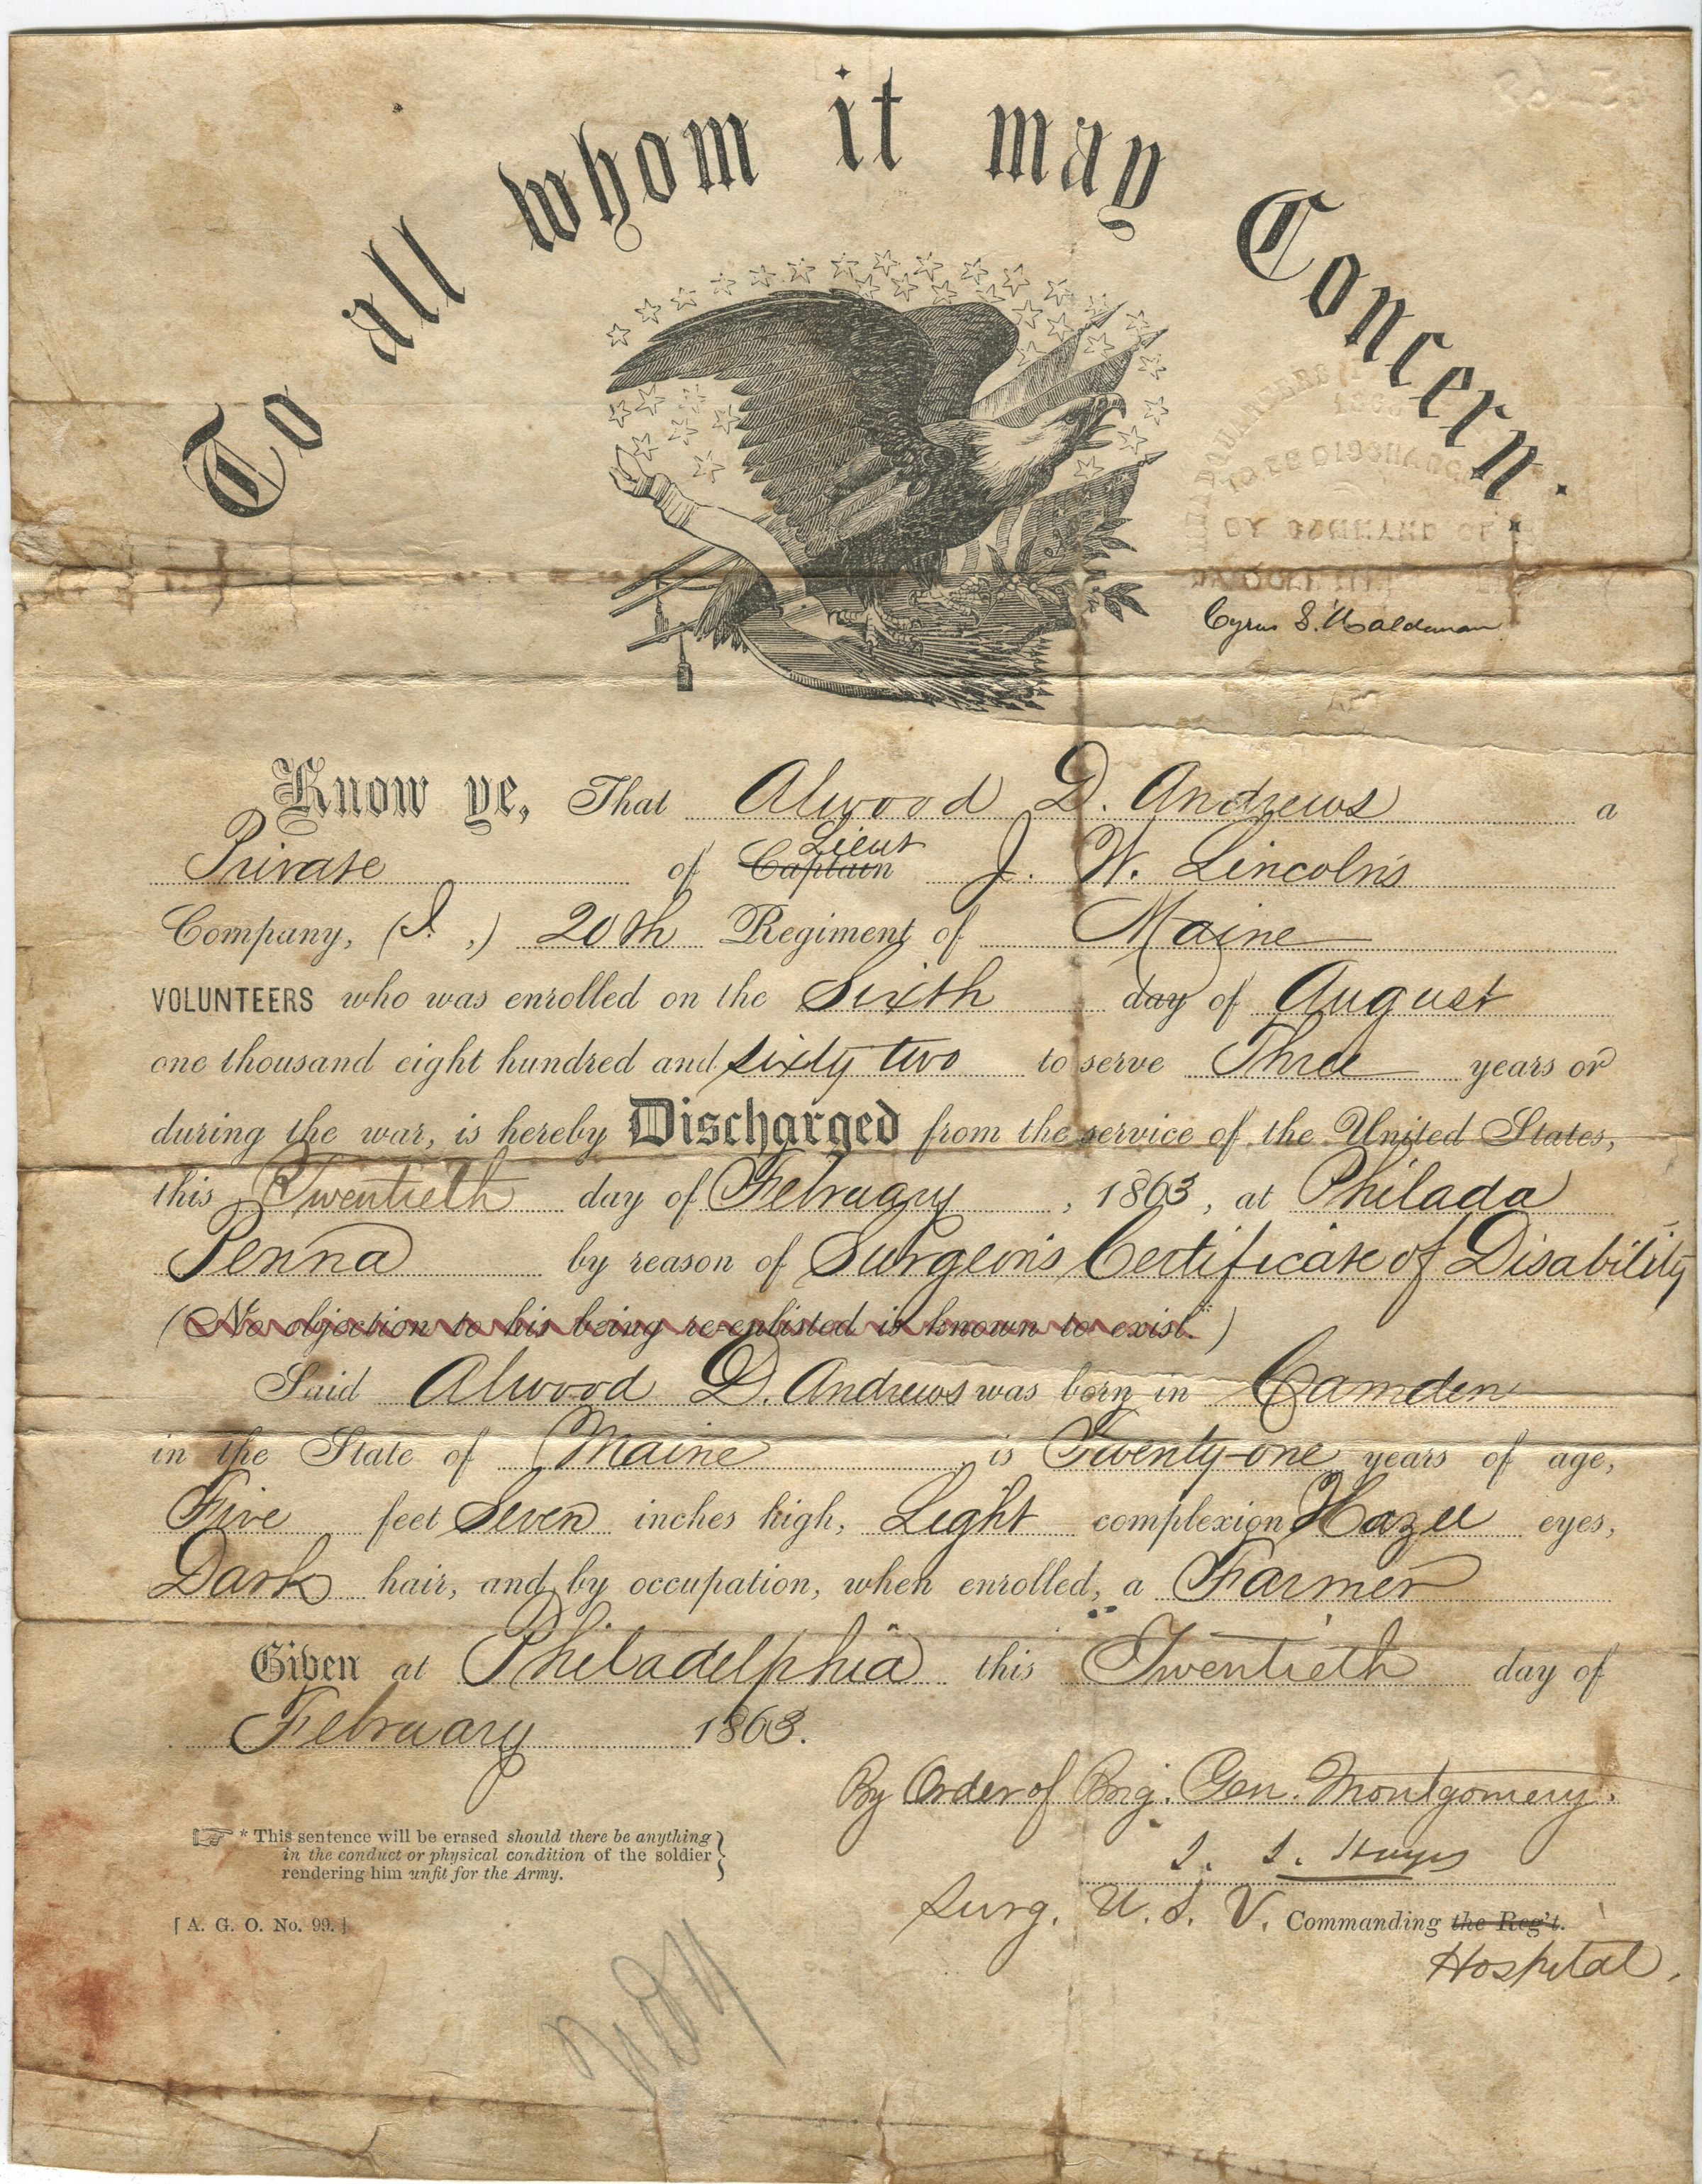 To all whom it may Concern.
Cyrus S. Haldeman
Know ye, That Alwood D. Andrews a
Lieut
Private of Captain J. W. Lincoln's
Company, (I.,) 20th Regiment of Maine
VOLUNTEERS who was enrolled on the Sixth day of August
one thousand eight hundred and sixty two to serve Three years or
during the war, is hereby Discharged from the service of the United States,
this Twentieth day of February, 1863, at Philada
Penna by reason of Surgeon's Certificate of Disability
(No objection to his being re-enlisted is known to exist.*)
Said Alwood D. Andrews was born in Camden
in the State of Maine, is Twenty-one years of age,
Five feet Seven inches high, Light complexion Hazel eyes,
Dark hair, and by occupation, when enrolled, a Farmer
Given at Philadelphia this Twentieth day of
February 1863.
By Order of Brig. Gen. Montgomery.
I. I. Hayes
Surg. U. S. V. Commanding the Reg't.
Hospital.
* This sentence will be erased should there be anything
in the conduct or physical condition of the soldier
rendering him unfit for the Army.
[A. G. O. No. 99.]